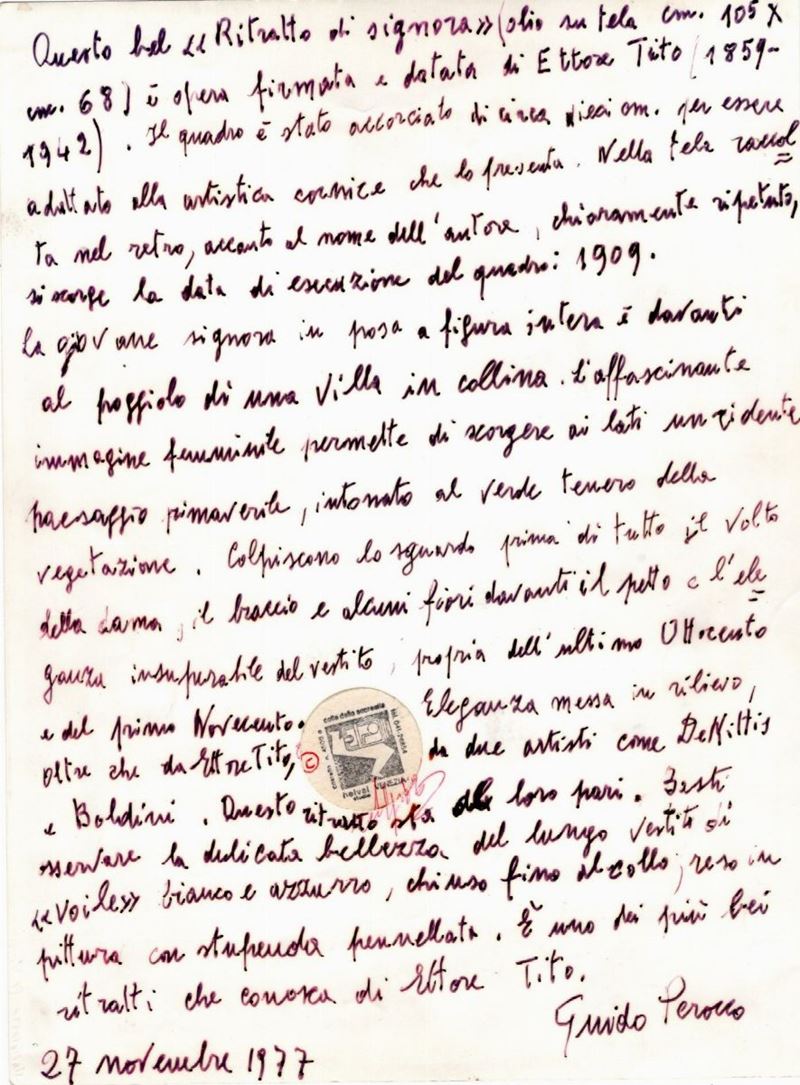 Questo bel «Ritratto di signora» (olio su tela cm. 105 x
cm. 68) è opera firmata e datata di Ettore Tito (1859-
1942). Il quadro è stato accorciato di circa dieci cm. per essere
adattato alla artistica cornice che lo presenta. Nella tela raccol
ta nel retro, accanto al nome dell'autore, chiaramente ripetuto,
si scorge la data di esecuzione del quadro: 1909.
La giovane signora in posa a figura intera è davanti
al poggiolo di una villa in collina. L'affascinante
immagine femminile permette di scorgere ai lati un ridente
paesaggio primaverile, intonato al verde tenero della
vegetazione. Colpiscono lo sguardo prima di tutto il volto
della dama, il braccio e alcuni fiori davanti il petto e l'ele
ganza insuperabile del vestito, propria dell'ultimo Ottocento
e del primo Novecento. Eleganza messa in rilievo,
oltre che da Ettore Tito, da due artisti come De Nittis
e Boldini. Questo ritratto sta al loro pari. Basti
osservare la delicata bellezza del lungo vestito di
«voile» bianco e azzurro, chiuso fino al collo, reso in
pittura con stupenda pennellata. È uno dei più bei
ritratti che conosca di Ettore Tito.
Guido Perocco
27 novembre 1977
©
calle della accademia
helvel
studio
VENEZIA